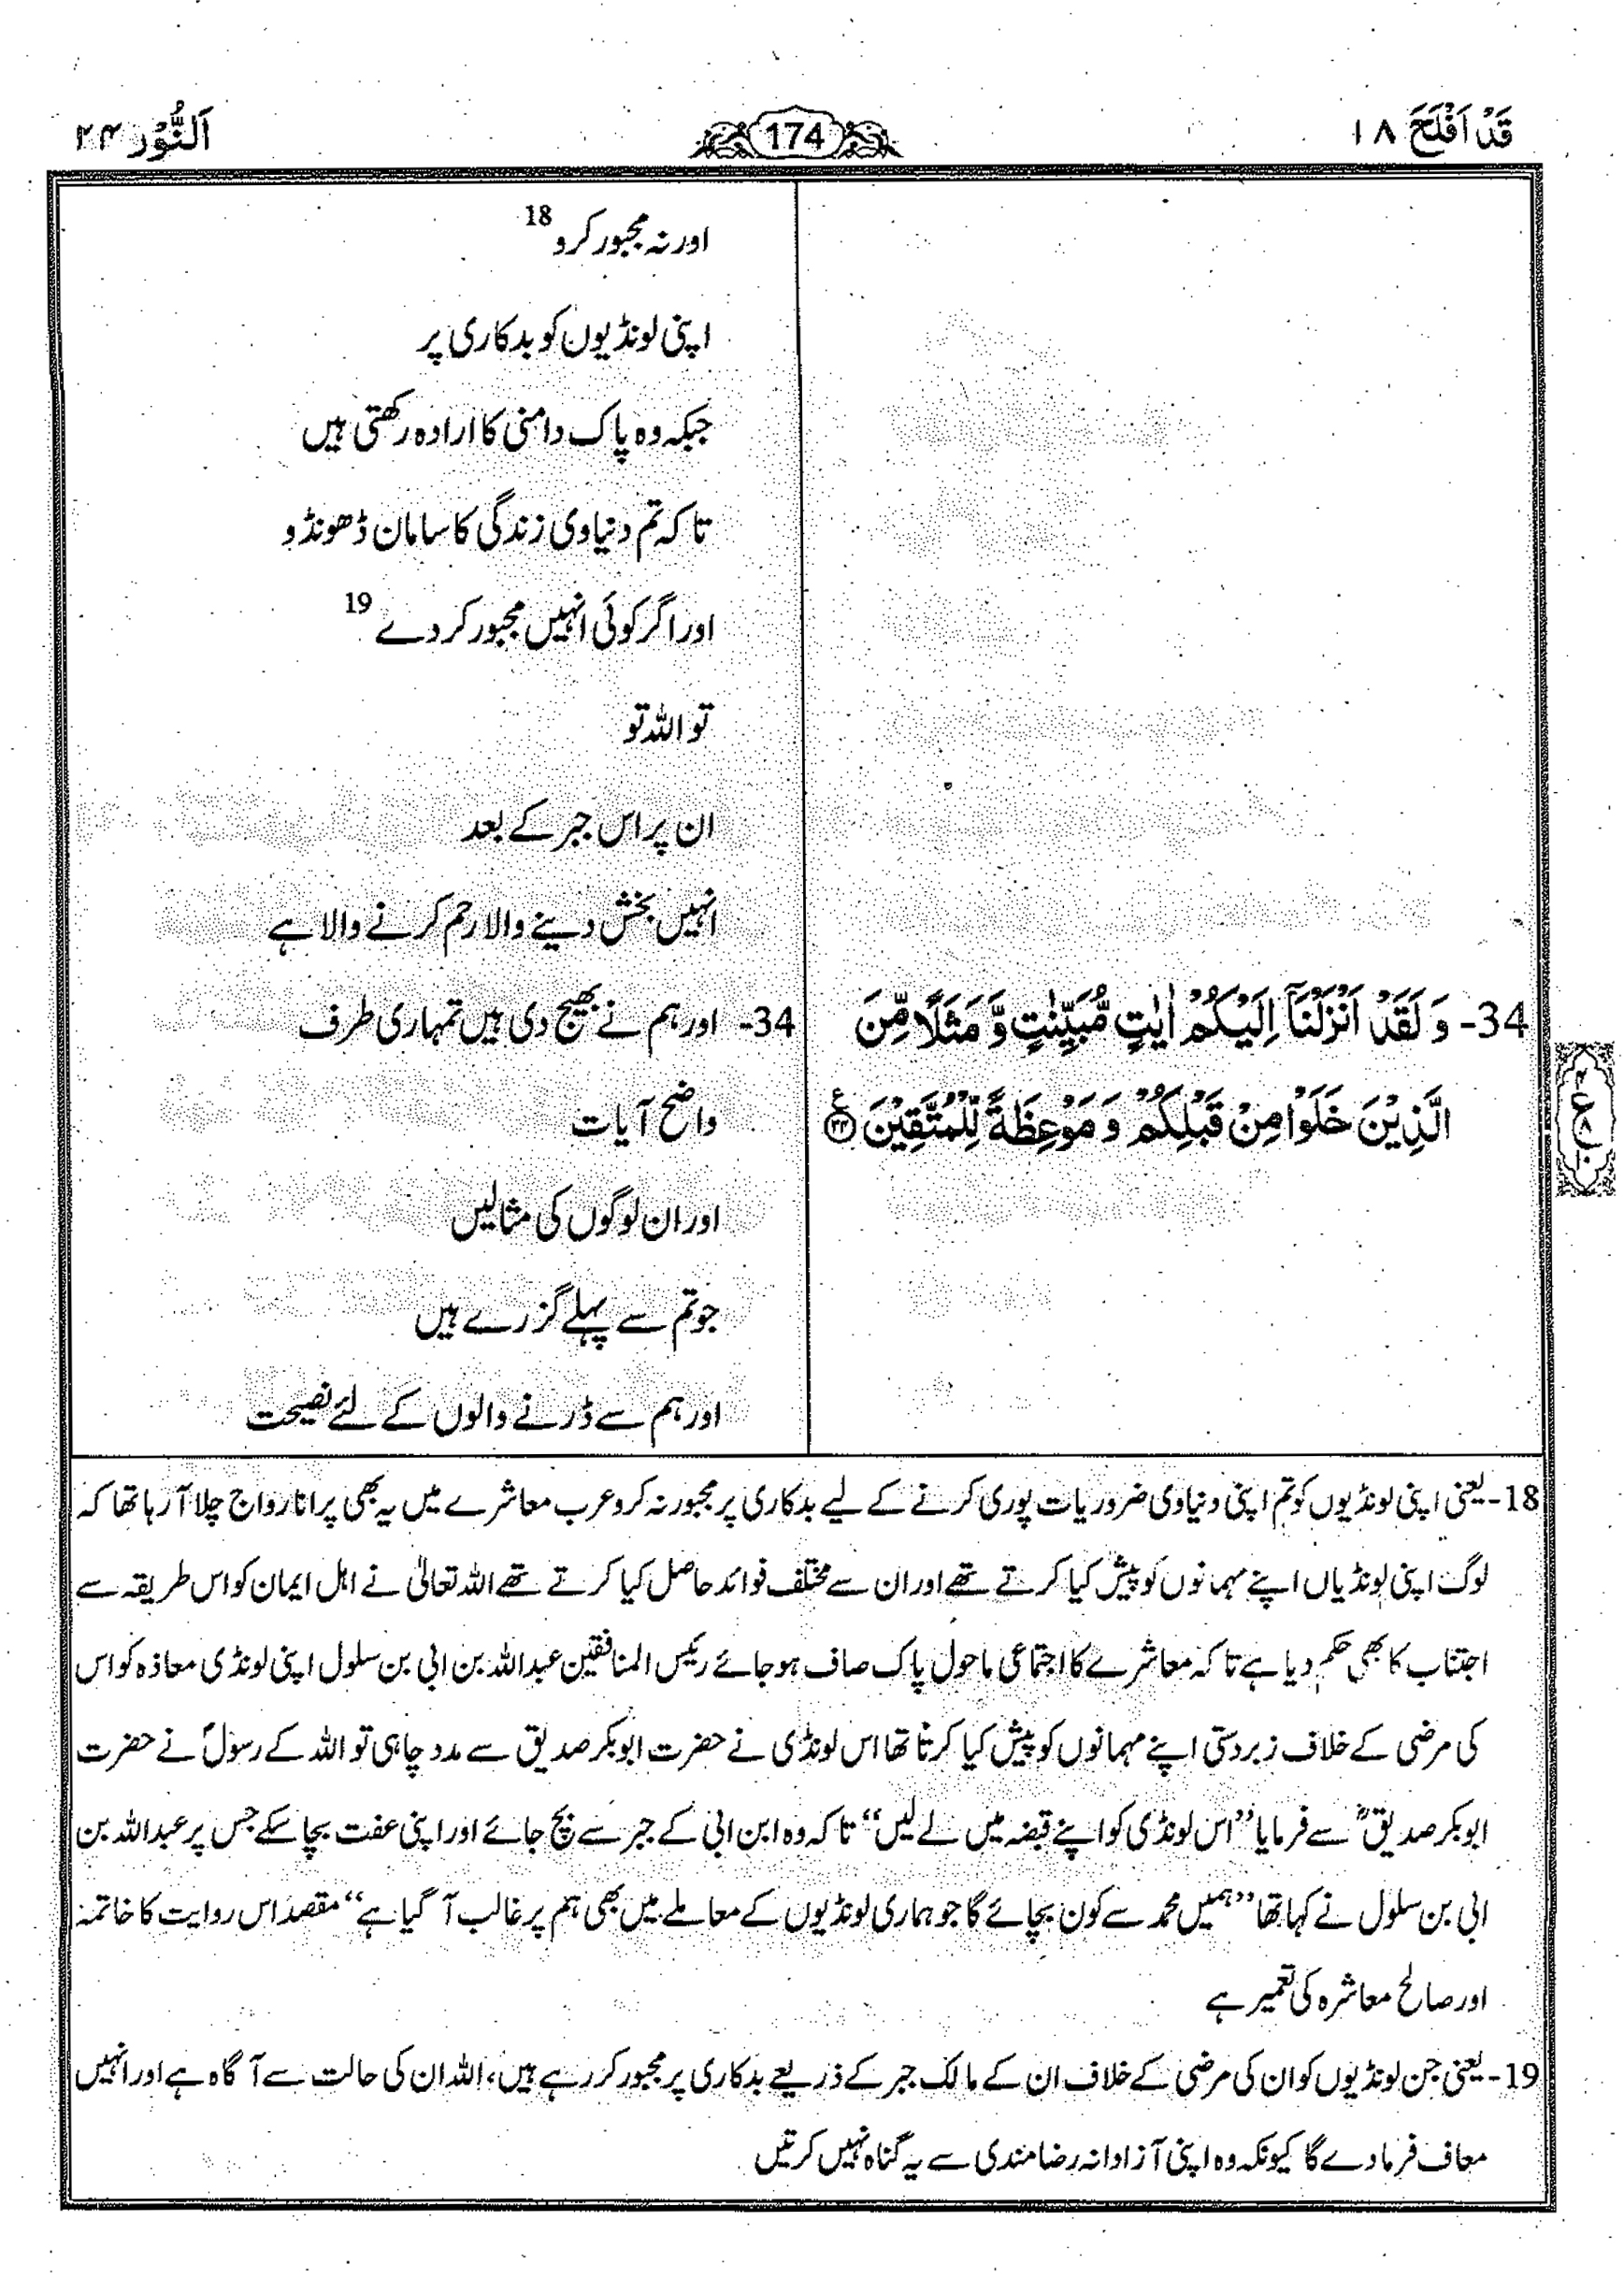 قَدْ اَفْلَحَ ١٨
174
اَلنُّوْر ٢٤
اور نہ مجبور کرو 18
اپنی لونڈیوں کو بدکاری پر
جبکہ وہ پاک دامنی کا ارادہ رکھتی ہیں
تاکہ تم دنیاوی زندگی کا سامان ڈھونڈو
اور اگر کوئی انہیں مجبور کر دے 19
تو اللہ تو
ان پر اس جبر کے بعد
انہیں بخش دینے والا رحم کرنے والا ہے
34- وَ لَقَدْ اَنْزَلْنَآ اِلَيْكُمْ اٰيٰتٍ مُّبَيِّنٰتٍ وَّ مَثَلًا مِّنَ
الَّذِيْنَ خَلَوْا مِنْ قَبْلِكُمْ وَ مَوْعِظَةً لِّلْمُتَّقِيْنَ ۧ ﴿٣٤﴾
ع
٨
34- اور ہم نے بھیج دی ہیں تمہاری طرف
واضح آیات
اور ان لوگوں کی مثالیں
جو تم سے پہلے گزرے ہیں
اور ہم سے ڈرنے والوں کے لئے نصیحت
18- یعنی اپنی لونڈیوں کو تم اپنی دنیاوی ضروریات پوری کرنے کے لیے بدکاری پر مجبور نہ کرو عرب معاشرے میں یہ بھی پرانا رواج چلا آ رہا تھا کہ
لوگ اپنی لونڈیاں اپنے مہمانوں کو پیش کیا کرتے تھے اور ان سے مختلف فوائد حاصل کیا کرتے تھے اللہ تعالیٰ نے اہل ایمان کو اس طریقہ سے
اجتناب کا بھی حکم دیا ہے تاکہ معاشرے کا اجتماعی ماحول پاک صاف ہو جائے رئیس المنافقین عبداللہ بن ابی بن سلول اپنی لونڈی معاذہ کو اس
کی مرضی کے خلاف زبردستی اپنے مہمانوں کو پیش کیا کرتا تھا اس لونڈی نے حضرت ابوبکر صدیق سے مدد چاہی تو اللہ کے رسولؐ نے حضرت
ابوبکر صدیقؓ سے فرمایا ”اس لونڈی کو اپنے قبضہ میں لے لیں“ تاکہ وہ ابن ابی کے جبر سے بچ جائے اور اپنی عفت بچا سکے جس پر عبداللہ بن
ابی بن سلول نے کہا تھا ”ہمیں محمد سے کون بچائے گا جو ہماری لونڈیوں کے معاملے میں بھی ہم پر غالب آ گیا ہے“ مقصد اس روایت کا خاتمہ
اور صالح معاشرہ کی تعمیر ہے
19- یعنی جن لونڈیوں کو ان کی مرضی کے خلاف ان کے مالک جبر کے ذریعے بدکاری پر مجبور کر رہے ہیں، اللہ ان کی حالت سے آگاہ ہے اور انہیں
معاف فرما دے گا کیونکہ وہ اپنی آزادانہ رضامندی سے یہ گناہ نہیں کرتیں